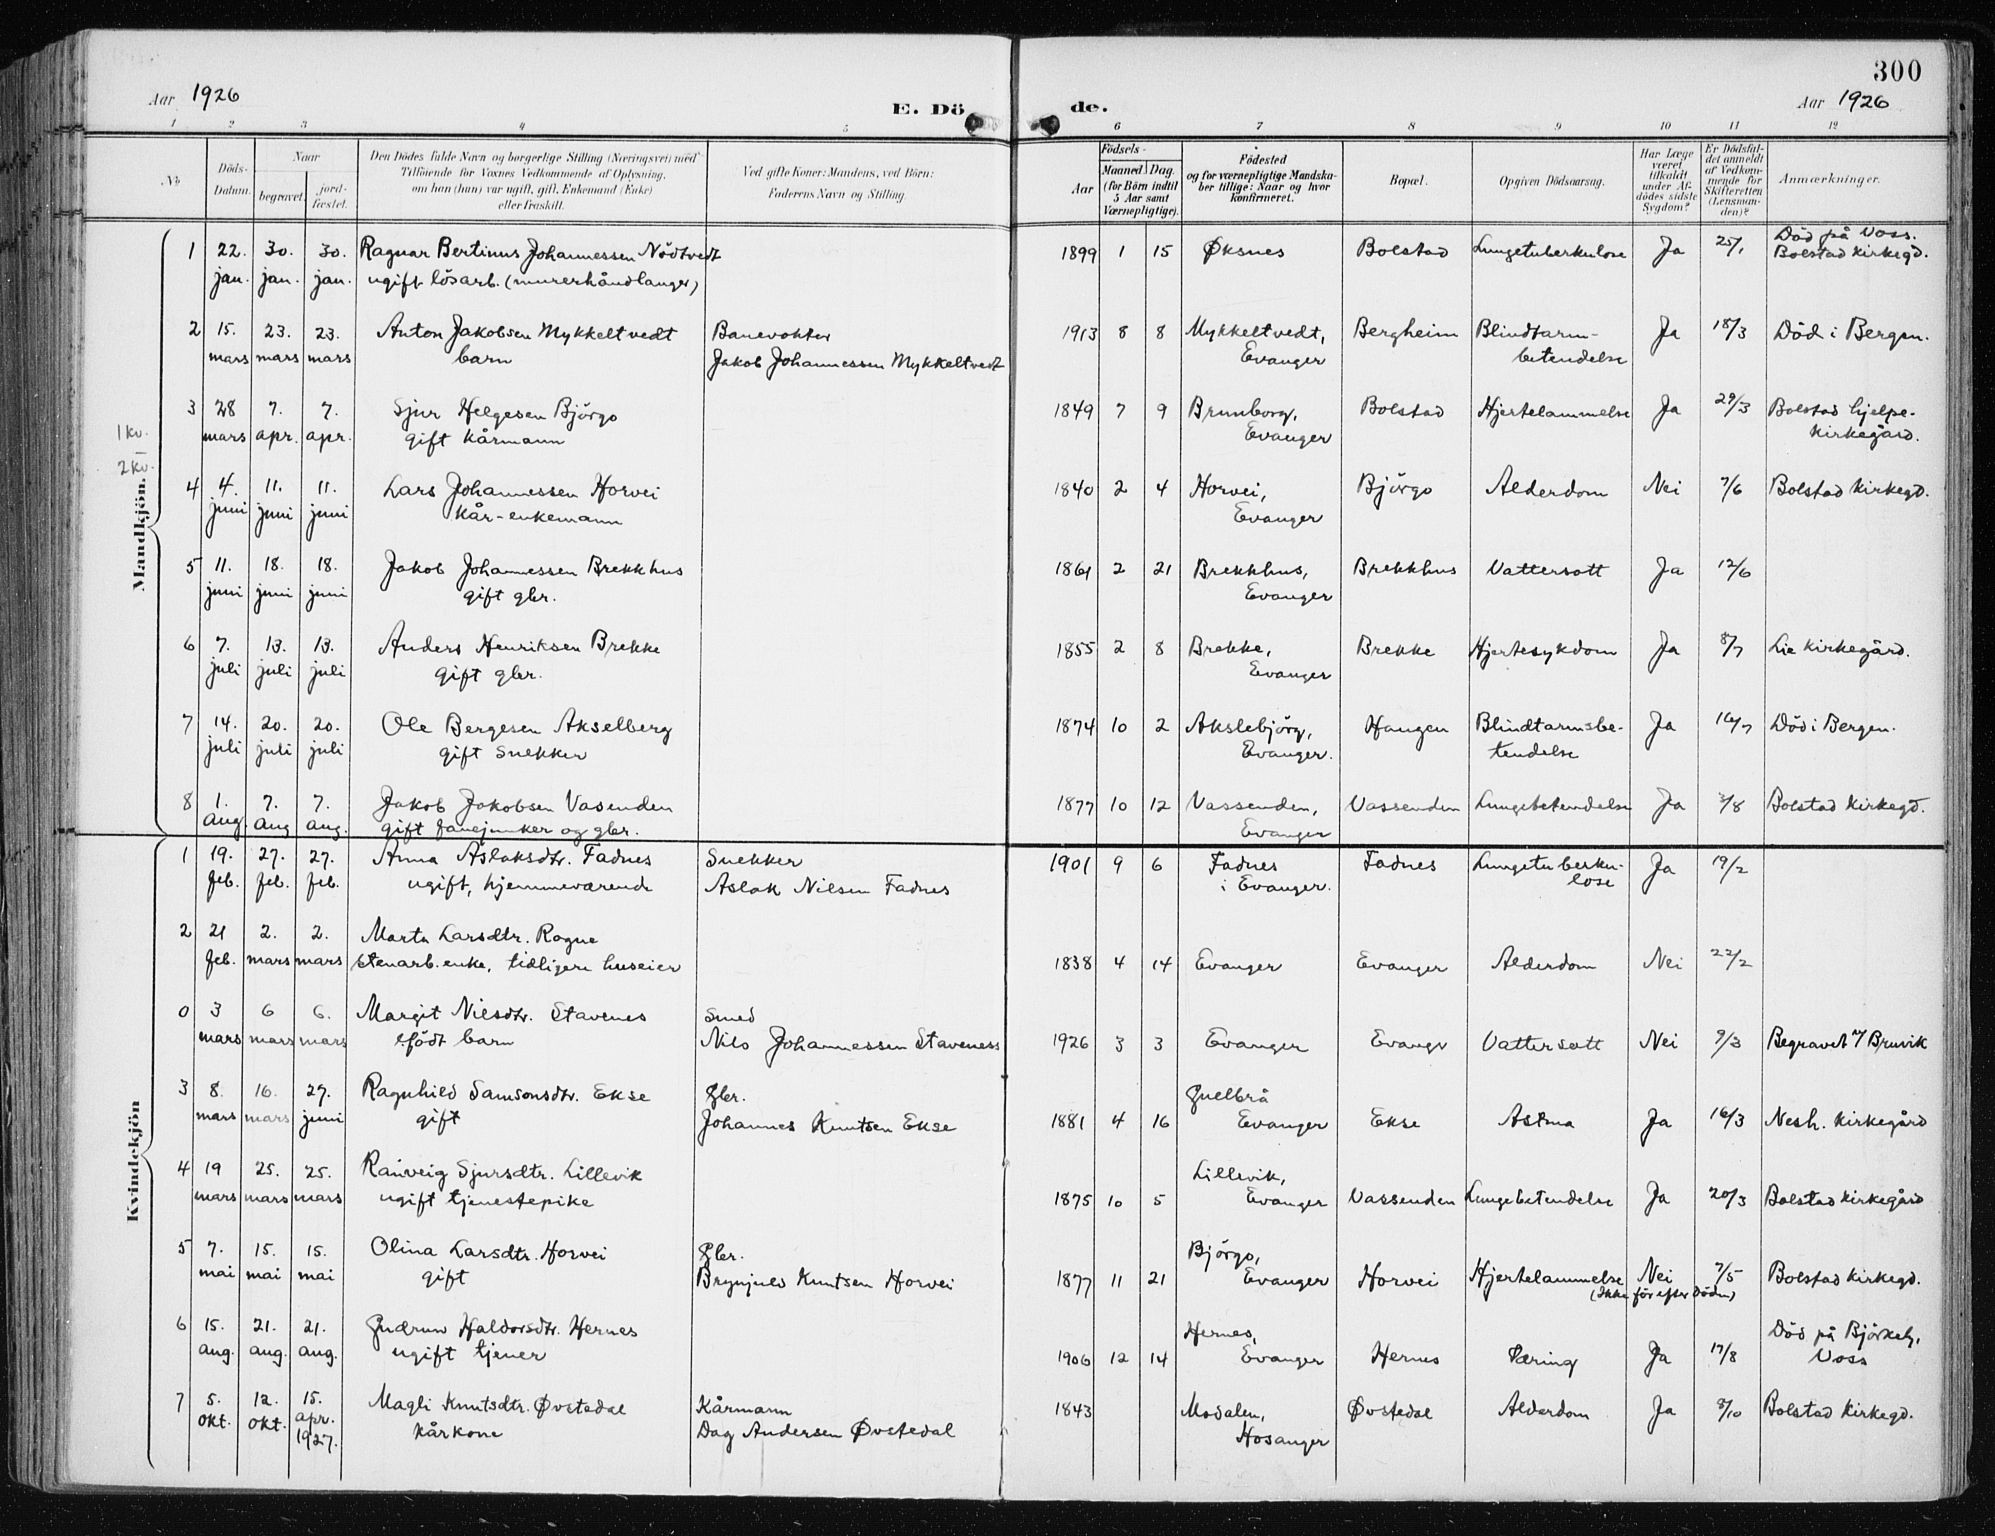 300
Aar 1926
E. Dö de.
Aar 1926
1 2 3 4 5 6 7 8 9 10 11 12
No
Döds-Datum.
Naar
begravet.
jord-fæstet.
Den Dödes fulde Navn og borgerlige Stilling (Næringsvei) med
Tilföiende for Voxnes Vedkommende af Oplysning,
om han (hun) var ugift, gift, Enkemand (Enke)
eller fraskilt.
Ved gifte Koner: Mandens, ved Börn:
Faderens Navn og Stilling.
Födsels-
Aar
Maaned. Dag.
(for Börn indtil
5 Aar samt
Værnepligtige).
Födested
og for værnepligtige Mandska-
ber tillige: Naar og hvor
konfirmeret.
Bopæl.
Opgiven Dödsaarsag.
Har Læge
været
tilkaldt
under Af-
dödes sidste
Sygdom?
Er Dödsfal-
det anmeldt
af Vedkom-
mende for
Skifteretten
(Lensman-
den)?
Anmærkninger.
Mandkjön.
1 kv.
2 kv.
1 22. 30. 30. Ragnar Bertinus Johannessen Nödtvedt 1899 1 15 Øksnes Bolstad Lungetuberkulose Ja 25/1 Död på Voss.
jan. jan. jan. ugift lösarb. (murerhåndlanger) Bolstad kirkegd.
2 15. 23. 23. Anton Jakobsen Mykkeltvedt Banevokter 1913 8 8 Mykkeltvedt, Bergheim Blindtarm- Ja 18/3 Död i Bergen.
mars mars mars barn Jakob Johannessen Mykkeltvedt Evanger betendelse
3 28 7. 7. Sjur Helgesen Björgo 1849 7 9 Brunborg, Bolstad Hjertelammelse Ja 29/3 Bolstad hjelpe-
mars apr. apr. gift kårmann Evanger kirkegård.
4 4. 11. 11. Lars Johannessen Horvei 1840 2 4 Horvei, Björgo Alderdom Nei 7/6 Bolstad kirkegd.
juni juni juni kår-enkemann Evanger
5 11. 18. 18. Jakob Johannessen Brekkhus 1861 2 21 Brekkhus, Brekkhus Vattersott Ja 12/6
juni juni juni gift gbr. Evanger
6 7. 13. 13. Anders Henriksen Brekke 1855 2 8 Brekke, Brekke Hjertesykdom Ja 8/7 Lie kirkegård.
juli juli juli gift gbr. Evanger
7 14. 20. 20. Ole Bergesen Akselberg 1874 10 2 Akslebjörg, Haugen Blindtarmsbe- Ja 16/7 Död i Bergen.
juli juli juli gift snekker Evanger. tendelse
8 1. 7. 7. Jakob Jakobsen Vasenden 1877 10 12 Vassenden, Vassenden Lungebetendelse Ja 3/8 Bolstad kirkegd.
aug. aug aug. gift fanejunker og gbr. Evanger
Kvindekjön
1 19. 27. 27. Anna Aslaksdtr. Fadnes Snekker 1901 9 6 Fadnes Fadnes Lungetuberku- Ja 19/2
feb. feb. feb. ugift, hjemmeværende Aslak Nilsen Fadnes i Evanger. lose
2 21 2. 2. Marta Larsdtr. Rogne
feb. mars mars stenarb. enke, tidligere huseier 1838 4 14 Evanger Evanger Alderdom Nei 22/2
0 3 6 6. Margit Nilsdtr. Stavenes Smed
mars mars mars födt barn Nils Johannessen Staveness 1926 3 3 Evanger Evangr Vattersott Nei 9/3 Begravet i Bruvik
3 8. 16. 27. Ragnhild Samsonsdtr. Ekse Gbr.
mars mars juni gift Johannes Knutsen Ekse 1881 4 16 Gullbrå Evanger Ekse Astma Ja 16/3 Nesh. kirkegård
4 19 25. 25. Ranveig Sjursdtr. Lillevik Lillevik,
mars mars mars ugift tjenestepike 1875 10 5 Evanger Vassenden Lungebetendelse Ja 20/3 Bolstad kirkegård
5 7. 15. 15. Olina Larsdtr. Horvei Gbr. Björgo,
mai mai mai gift Brynjulv Knutsen Horvei 1877 11 21 Evanger Horvei Hjertelammelse Nei 7/5 Bolstad kirkegd.
(Ikke för efter Döden)
6 15. 21. 21. Gudrun Haldorsdtr. Hernes Hernes, Död på Björkely,
aug. aug. aug. ugift tjener 1906 12 14 Evanger Hernes Tæring Ja 17/8 Voss
7 5. 12. 15. Magli Knutsdtr. Øvstedal Kårmann 1843 Modalen, Øvstedal Alderdom Ja 8/10 Bolstad kirkegd.
okt. okt. apr. 1927. kårkone Dag Andersen Øvstedal Hosanger